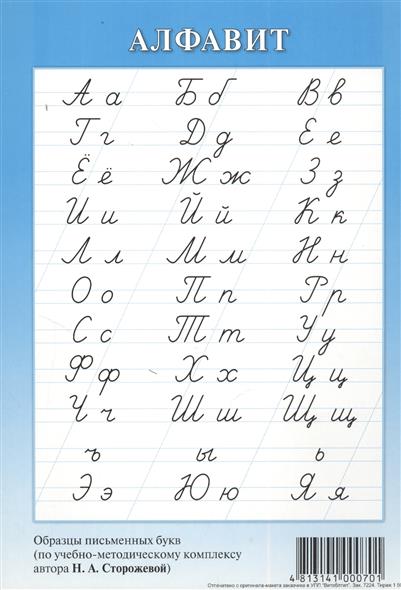 АЛФАВИТ
А а Б б В в
Г г Д д Е е
Ё ё Ж ж З з
И и Й й К к
Л л М м Н н
О о П п Р р
С с Т т У у
Ф ф Х х Ц ц
Ч ч Ш ш Щ щ
ъ ы ь
Э э Ю ю Я я
Образцы письменных букв
(по учебно-методическому комплексу
автора Н. А. Сторожевой)
4 813141 000701
Отпечатано с оригинала-макета заказчика в УПП "Витебпит". Зак. 7224. Тираж